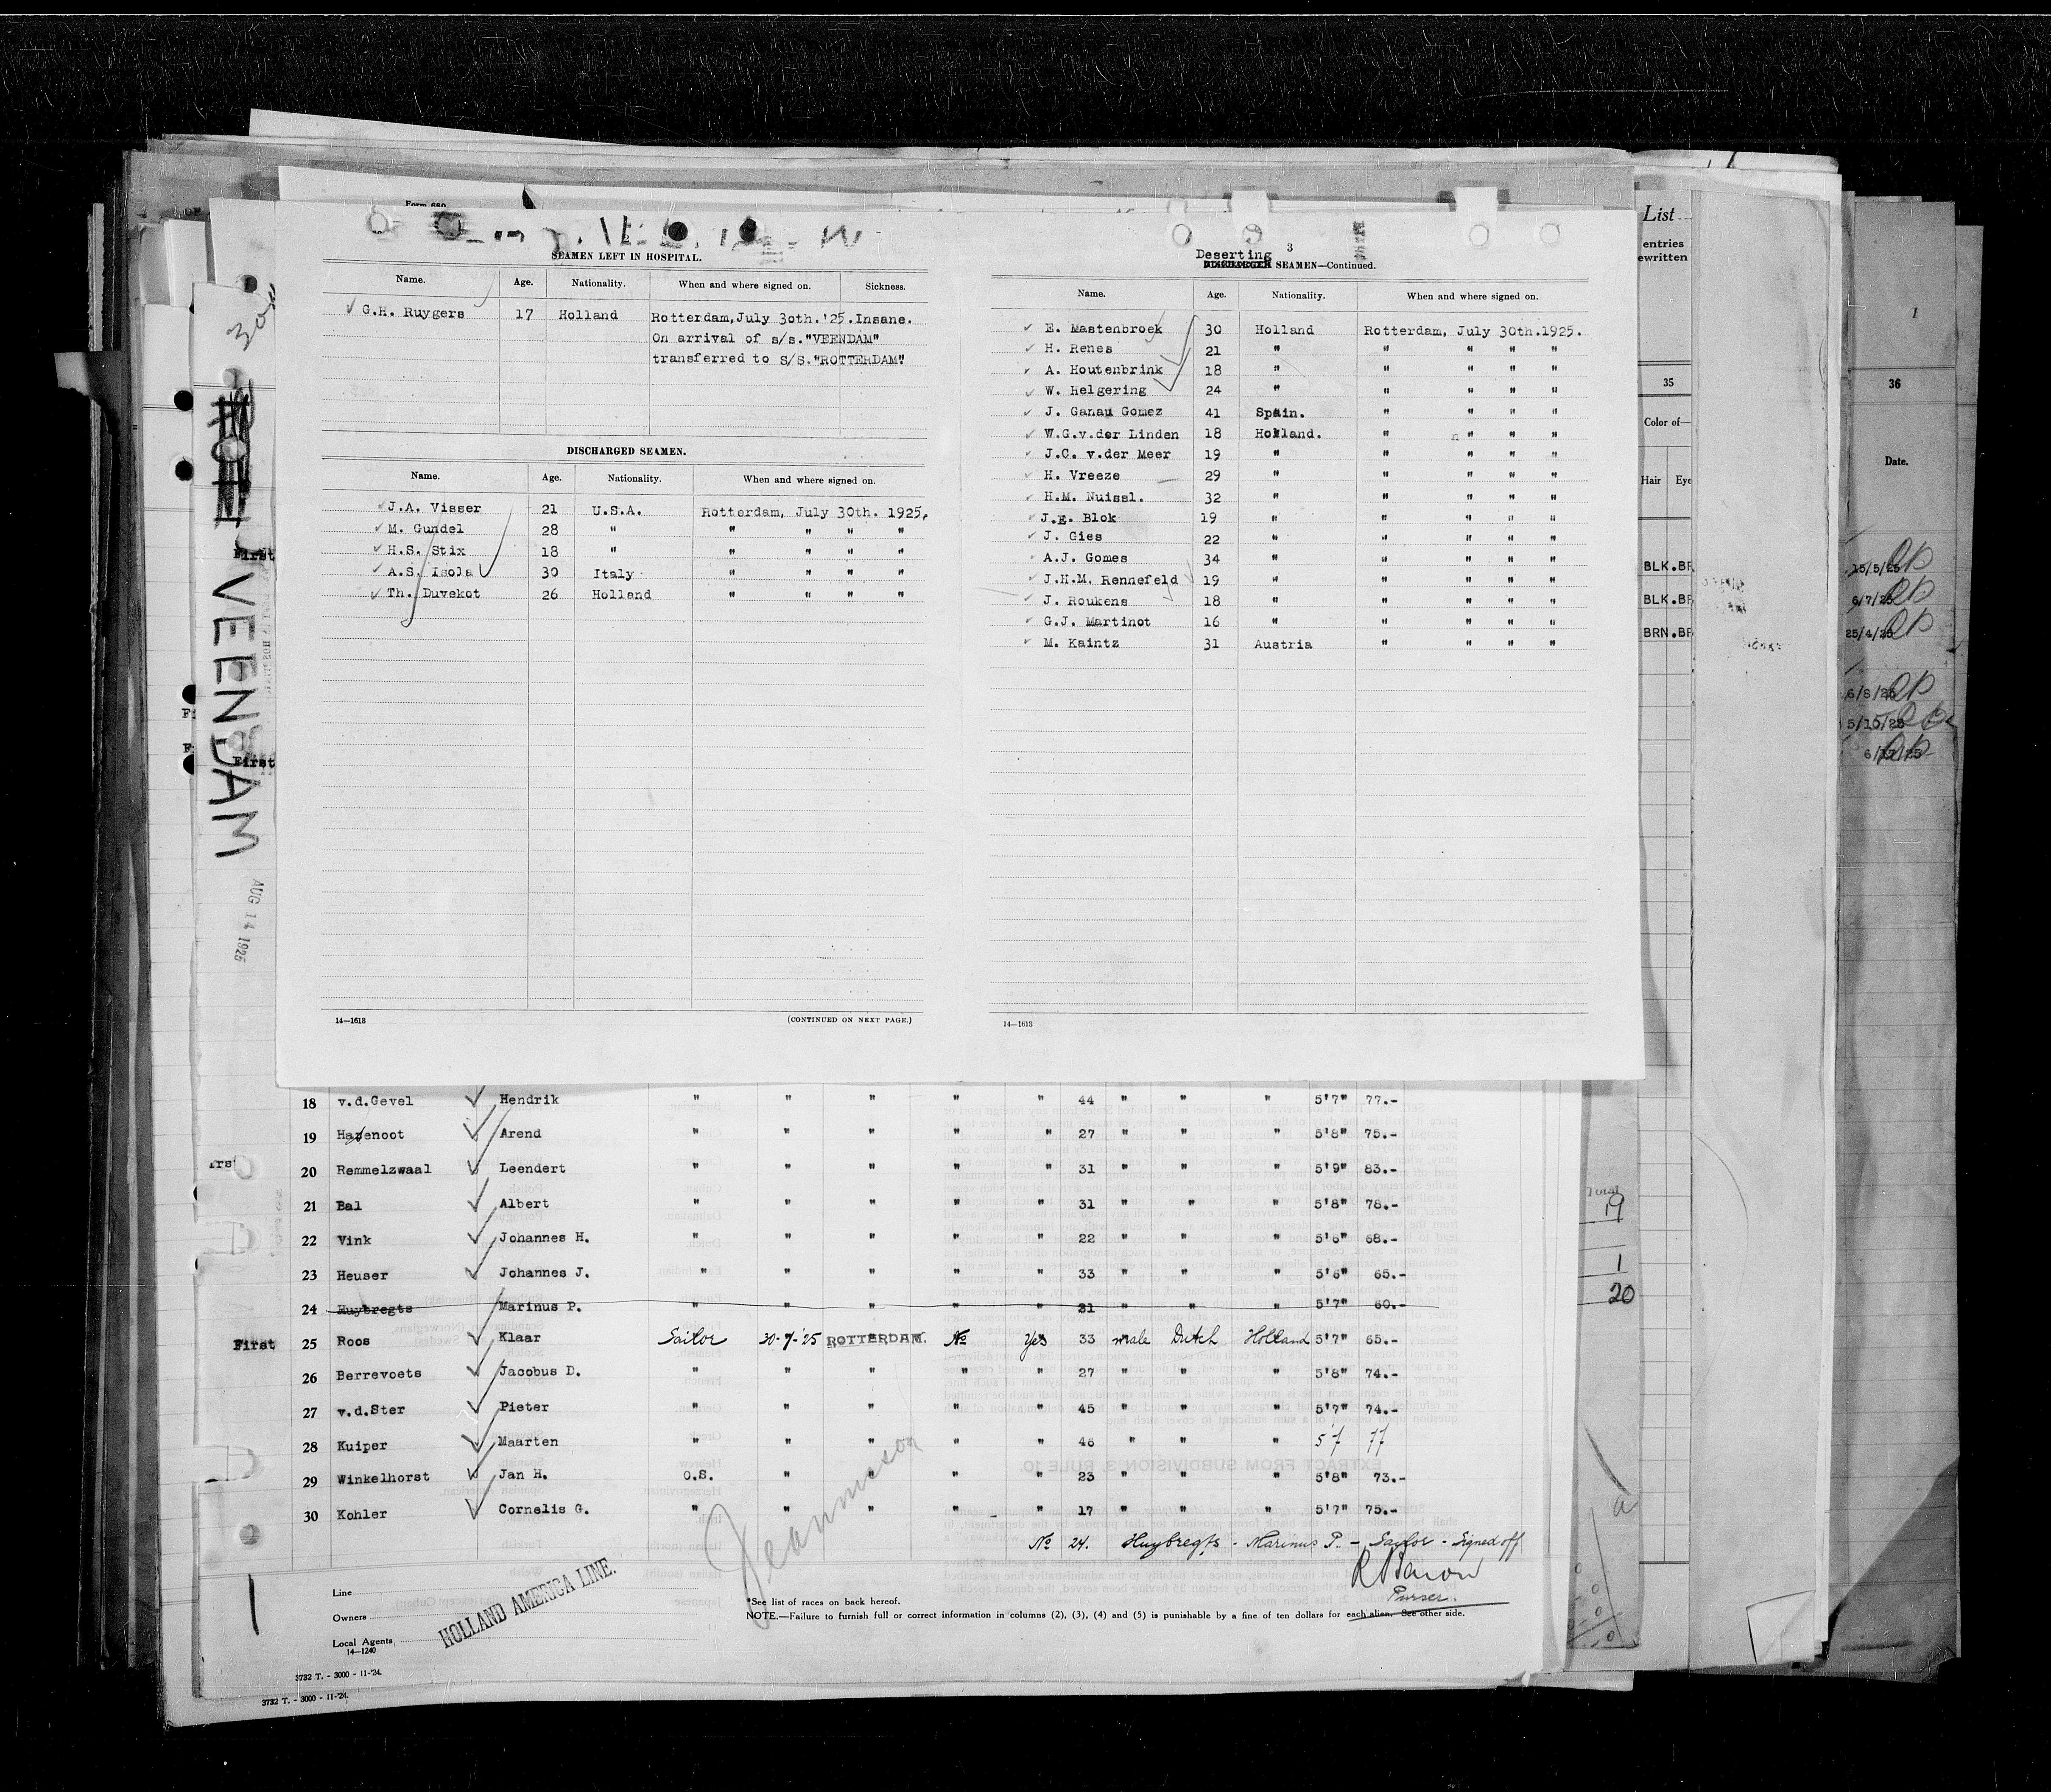 Form 680
SEAMEN LEFT IN HOSPITAL.
Name. Age. Nationality. When and where signed on. Sickness.
G.H. Ruygers 17 Holland Rotterdam, July 30th.'25. Insane.
On arrival of s/s."VEENDAM"
transferred to S/S."ROTTERDAM".
DISCHARGED SEAMEN.
Name. Age. Nationality. When and where signed on.
J.A. Visser 21 U.S.A. Rotterdam, July 30th. 1925.
M. Gundel 28 " " " " "
H.S. Stix 18 " " " " "
A.S. Isola 30 Italy " " " "
Th. Duvekot 26 Holland " " " "
14—1613 (CONTINUED ON NEXT PAGE.)
3
Deserting
SEAMEN—Continued.
Name. Age. Nationality. When and where signed on.
E. Mastenbroek 30 Holland Rotterdam, July 30th.1925.
H. Renes 21 " " " " "
A. Houtenbrink 18 " " " " "
W. Helgering 24 " " " " "
J. Ganau Gomez 41 Spain. " " " "
W.G.v.der Linden 18 Holland. " " " "
J.C. v.der Meer 19 " " " " "
H. Vreeze 29 " " " " "
H.M. Nuissl. 32 " " " " "
J.E. Blok 19 " " " " "
J. Gies 22 " " " " "
A.J. Gomes 34 " " " " "
J.H.M. Rennefeld 19 " " " " "
J. Roukens 18 " " " " "
G.J. Martinot 16 " " " " "
M. Kaintz 31 Austria " " " "
14—1613
VEENDAM
AUG 14 1925
First
First
List
entries
ewritten
35
Color of—
Hair Eye
BLK.BR
BLK.BR
BRN.BR
1
36
Date.
15/5/25
6/7/25
25/4/25
6/8/25
5/10/25
6/17/25
18 v.d.Gevel Hendrik " " " " " 44 " " " 5'7" 77.-
19 Hazenoot Arend " " " " " 27 " " " 5'8" 75.-
20 Remmelzwaal Leendert " " " " " 31 " " " 5'9" 83.-
21 Bal Albert " " " " " 31 " " " 5'8" 78.-
22 Vink Johannes H. " " " " " 22 " " " 5'6" 68.-
23 Heuser Johannes J. " " " " " 33 " " " 5'6" 65.-
24 Huybregts Marinus P. " " " " " 21 " " " 5'7" 60.-
First 25 Roos Klaar Sailor 30-7-'25 ROTTERDAM. No Yes 33 male Dutch Holland 5'7" 65.-
26 Berrevoets Jacobus D. " " " " " 27 " " " 5'8" 74.-
27 v.d.Ster Pieter " " " " " 45 " " " 5'7" 74.-
28 Kuiper Maarten " " " " " 46 " " " 5'7 77
29 Winkelhorst Jan H. O.S. " " " " 23 " " " 5'8" 73.-
30 Kohler Cornelis G. " " " " " 17 " " " 5'7" 75.-
No 24. Huybregts - Marinus P. - Sailor - Signed off
Purser.
Total
19
1
20
Line
Owners
Local Agents
14—1240
HOLLAND AMERICA LINE.
*See list of races on back hereof.
NOTE.—Failure to furnish full or correct information in columns (2), (3), (4) and (5) is punishable by a fine of ten dollars for each alien. See other side.
3732 T. - 3000 - 11-'24.
3732 T. - 3000 - 11-'24.
EXTRACT FROM SUBDIVISION 3, RULE 10.